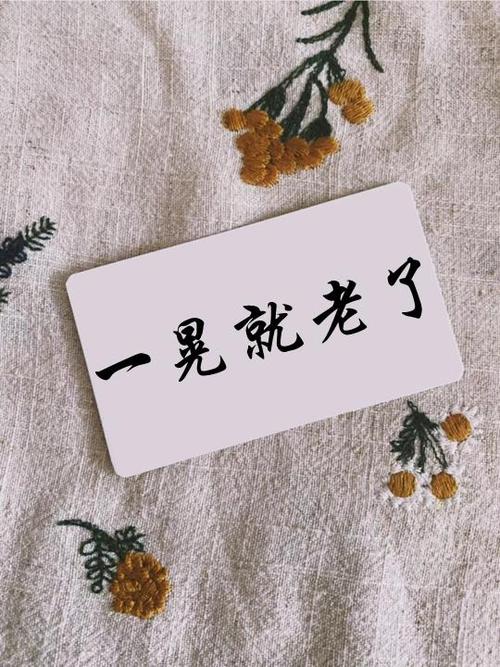 一晃就老了